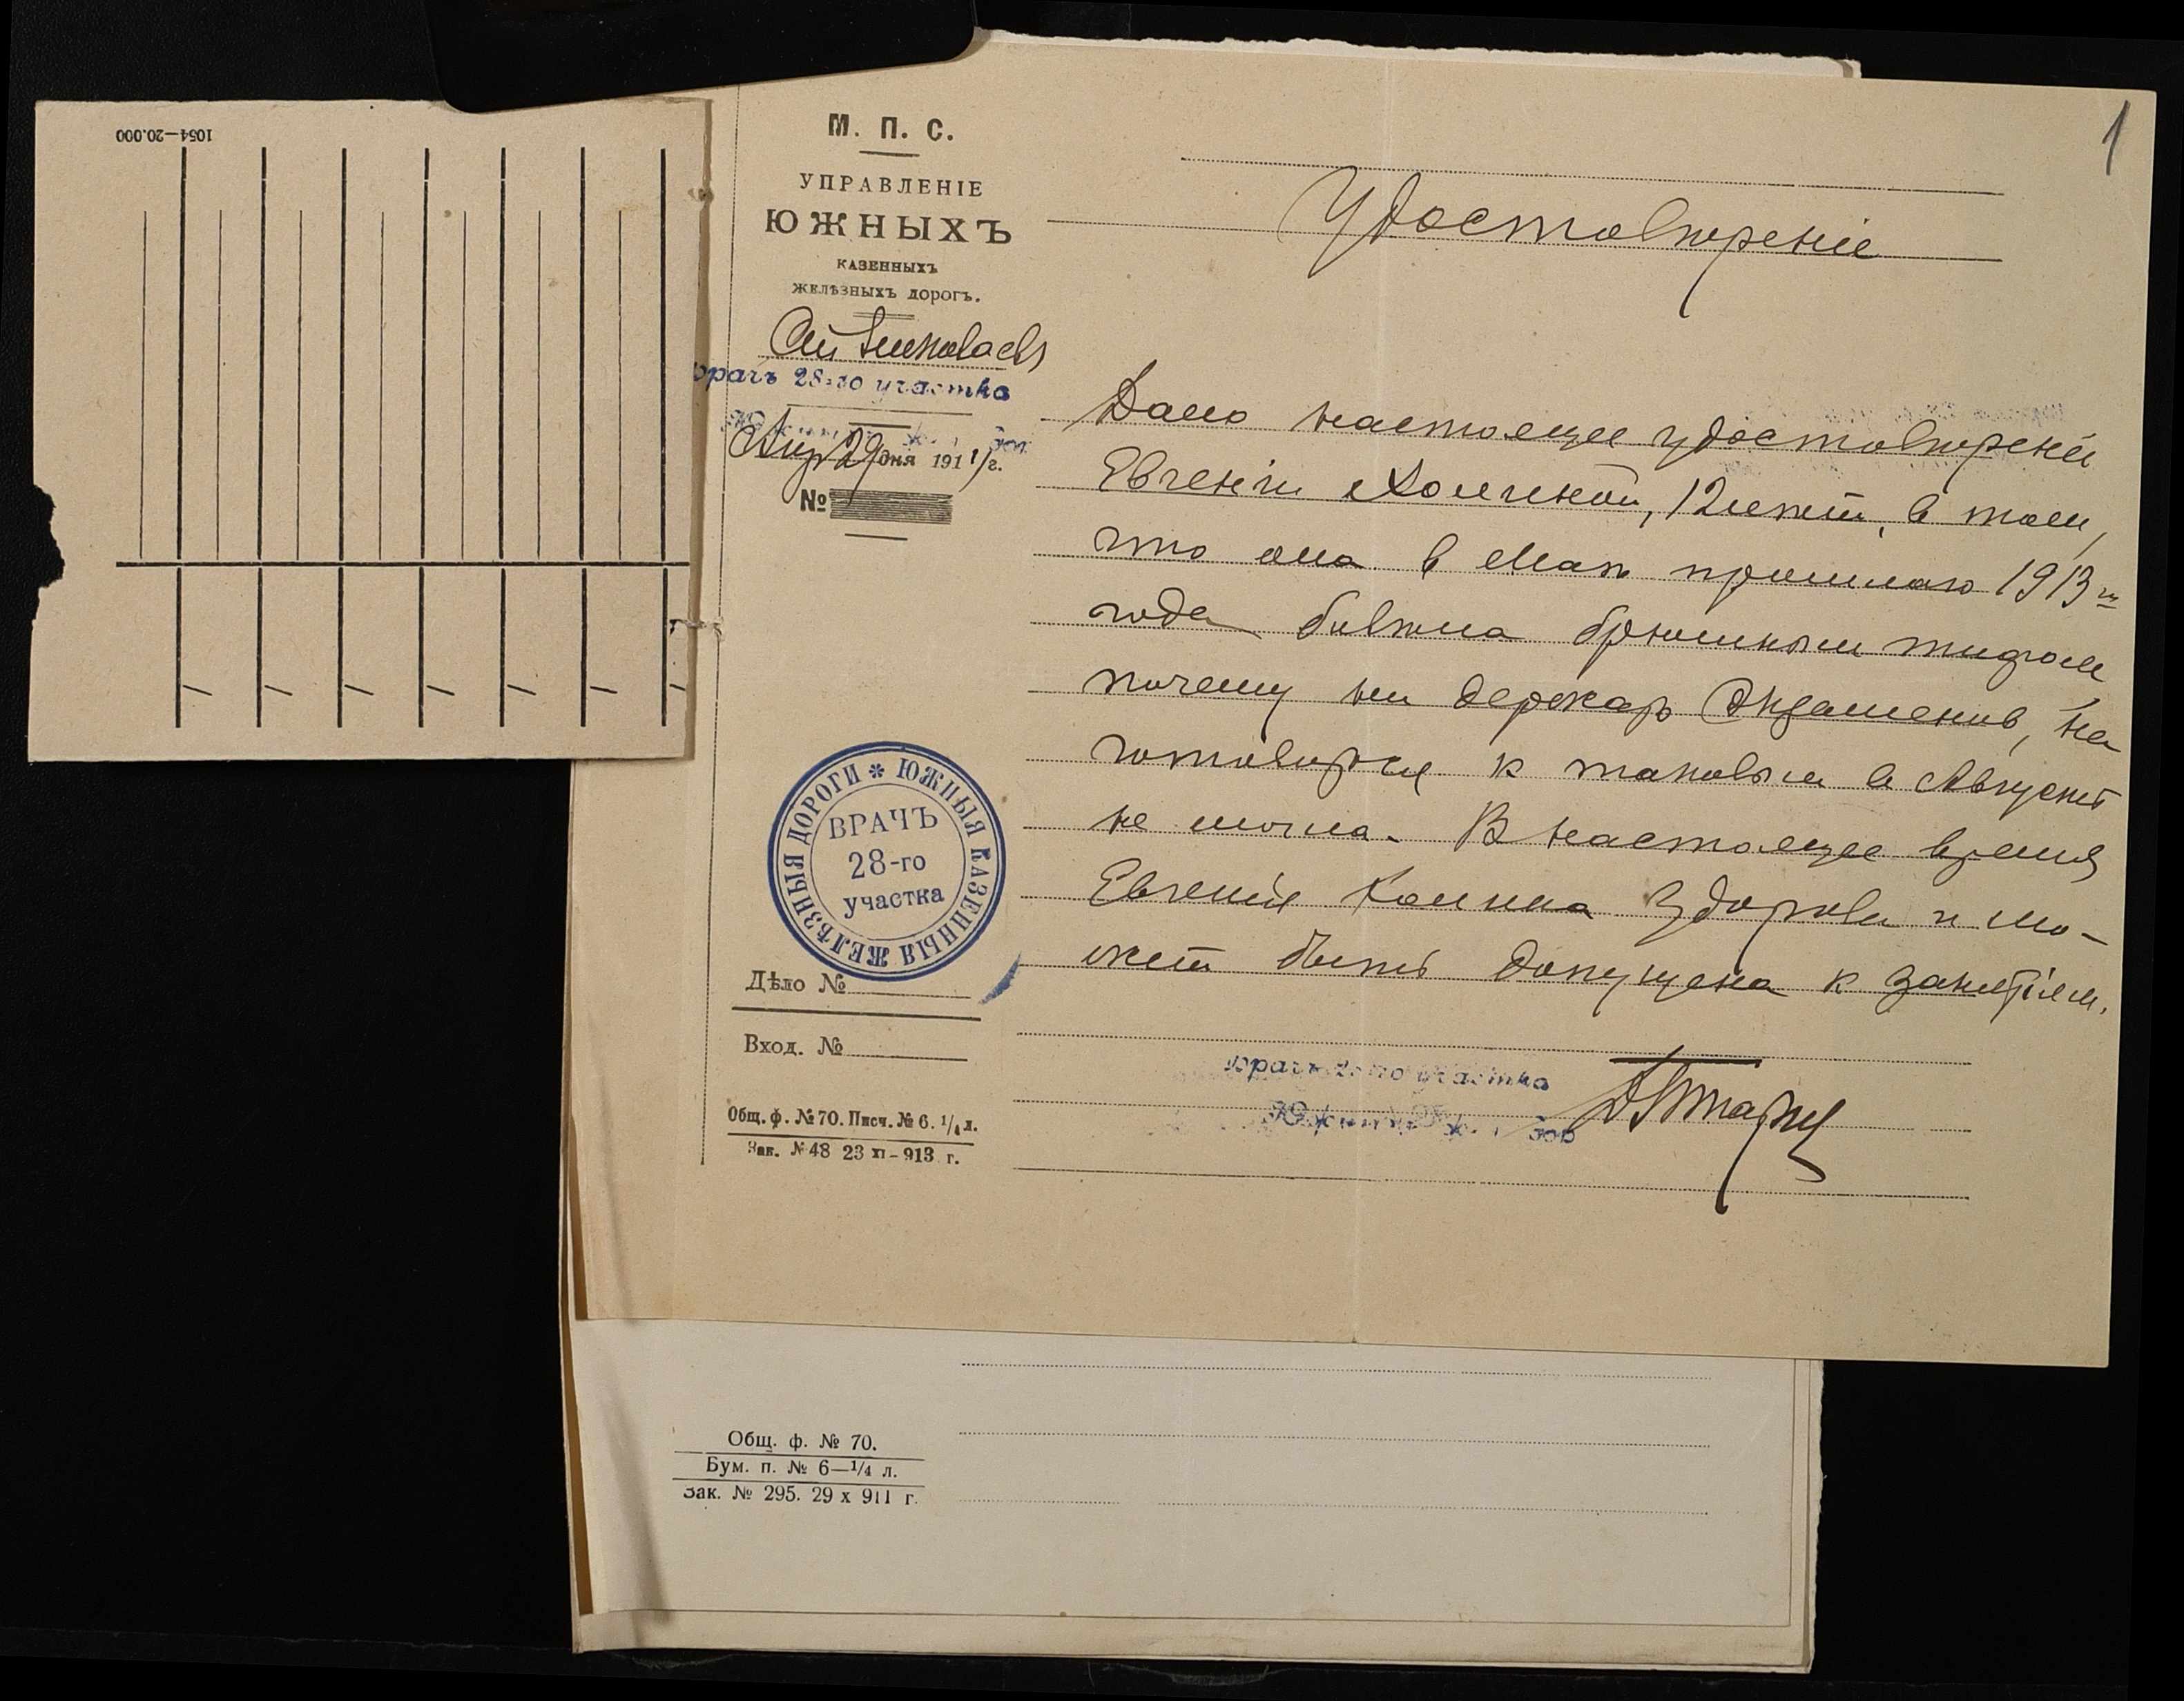 1054—20.000
1
М. П. С.
УПРАВЛЕНІЕ
ЮЖНЫХЪ
КАЗЕННЫХЪ
ЖЕЛѢЗНЫХЪ ДОРОГЪ.
врачъ 28-го участка
29 дня 191 г.
№
Удостовѣреніе
Дано настоящее удостовѣреніе
Евгеніи 12 лѣтъ, в том,
что она в Маѣ прошлаго 1913 го
года болѣла брюшным тифом
почему ни держать Экзаменов, ни
готовиться к таковым в Августѣ
не могла. В настоящее время
Евгенія здорова и мо-
жетъ быть допущена к занятіям.
ЮЖНЫЯ КАЗЕННЫЯ ЖЕЛѢЗНЫЯ ДОРОГИ
ВРАЧЪ
28-го
участка
Дѣло №
Вход. №
врачъ 28-го участка
Общ. ф. № 70. Писч. № 6. 1/4 л.
Зак. № 48 23 XI - 913 г.
Общ. ф. № 70.
Бум. п. № 6—1/4 л.
Зак. № 295. 29 х 911 г.